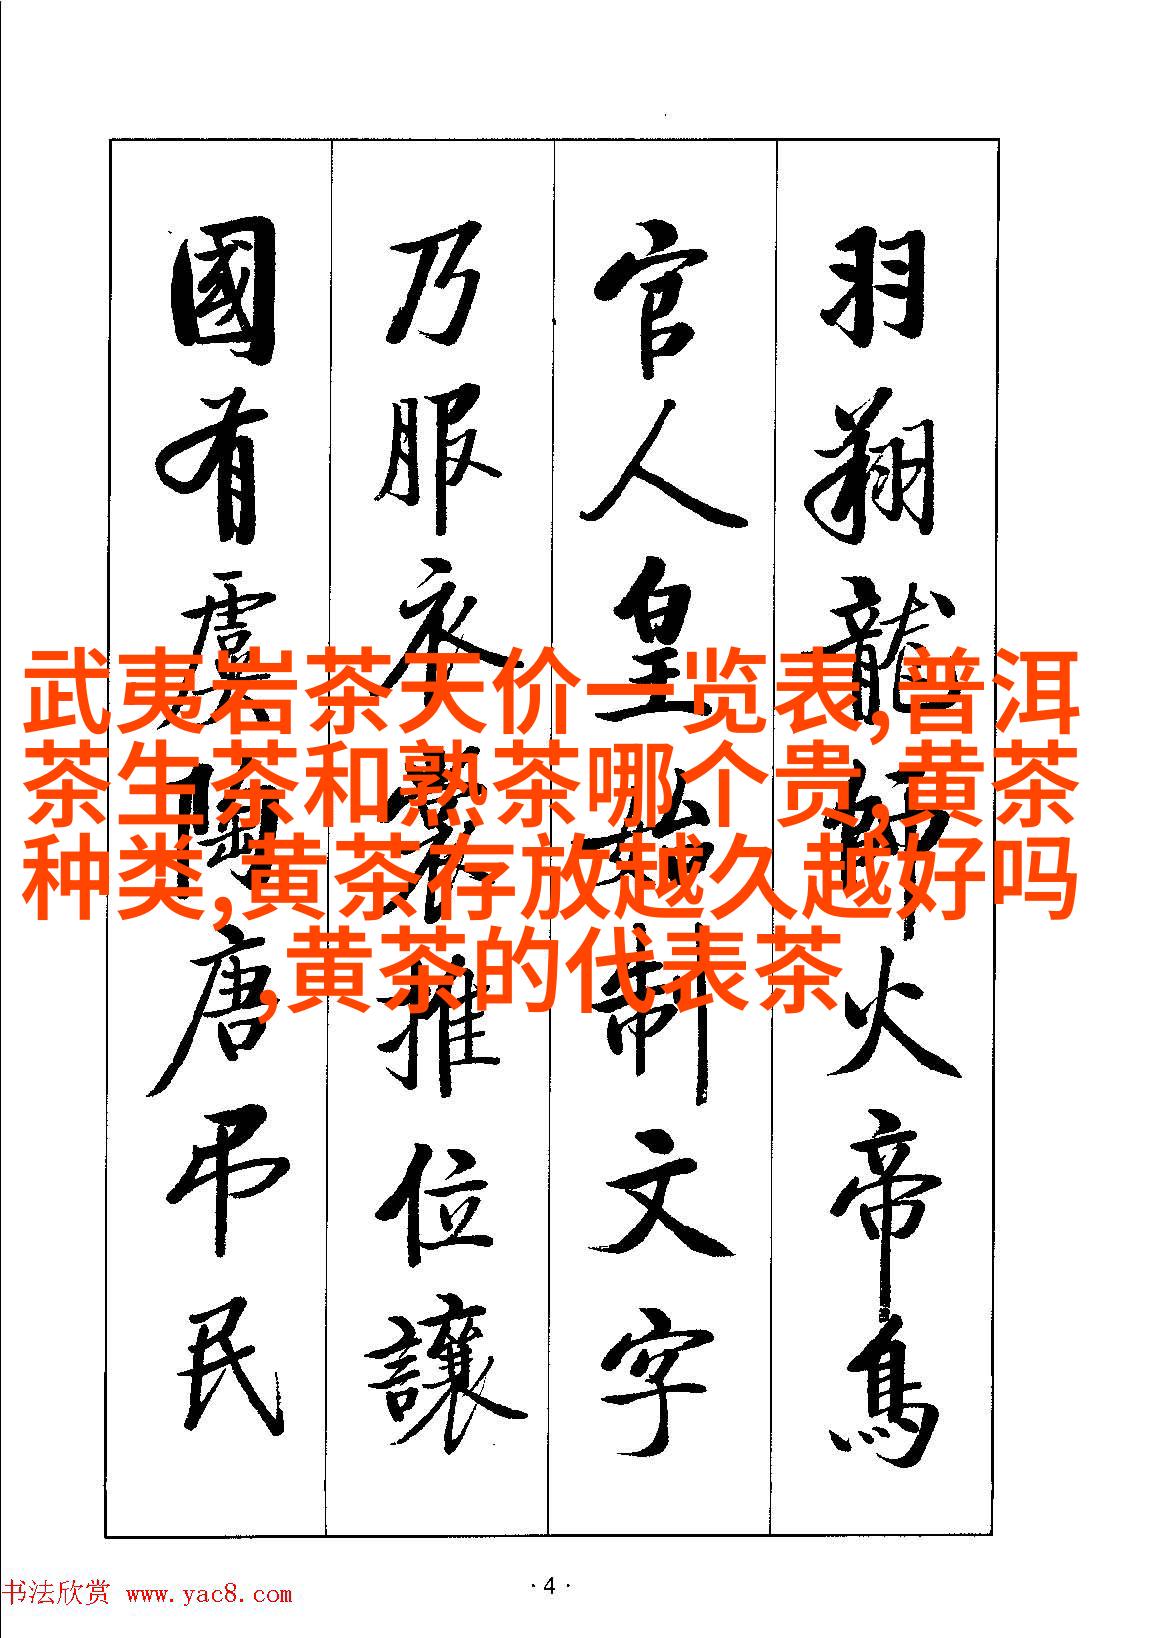 羽翔龍師火帝鳥
官人皇始制文字
乃服衣裳推位讓
國有虞陶唐弔民
武夷岩茶天价一览表,普洱
茶生茶和熟茶哪个贵,黄茶
种类,黄茶存放越久越好吗
,黄茶的代表茶
·4·
书法欣赏 www.yac8.com